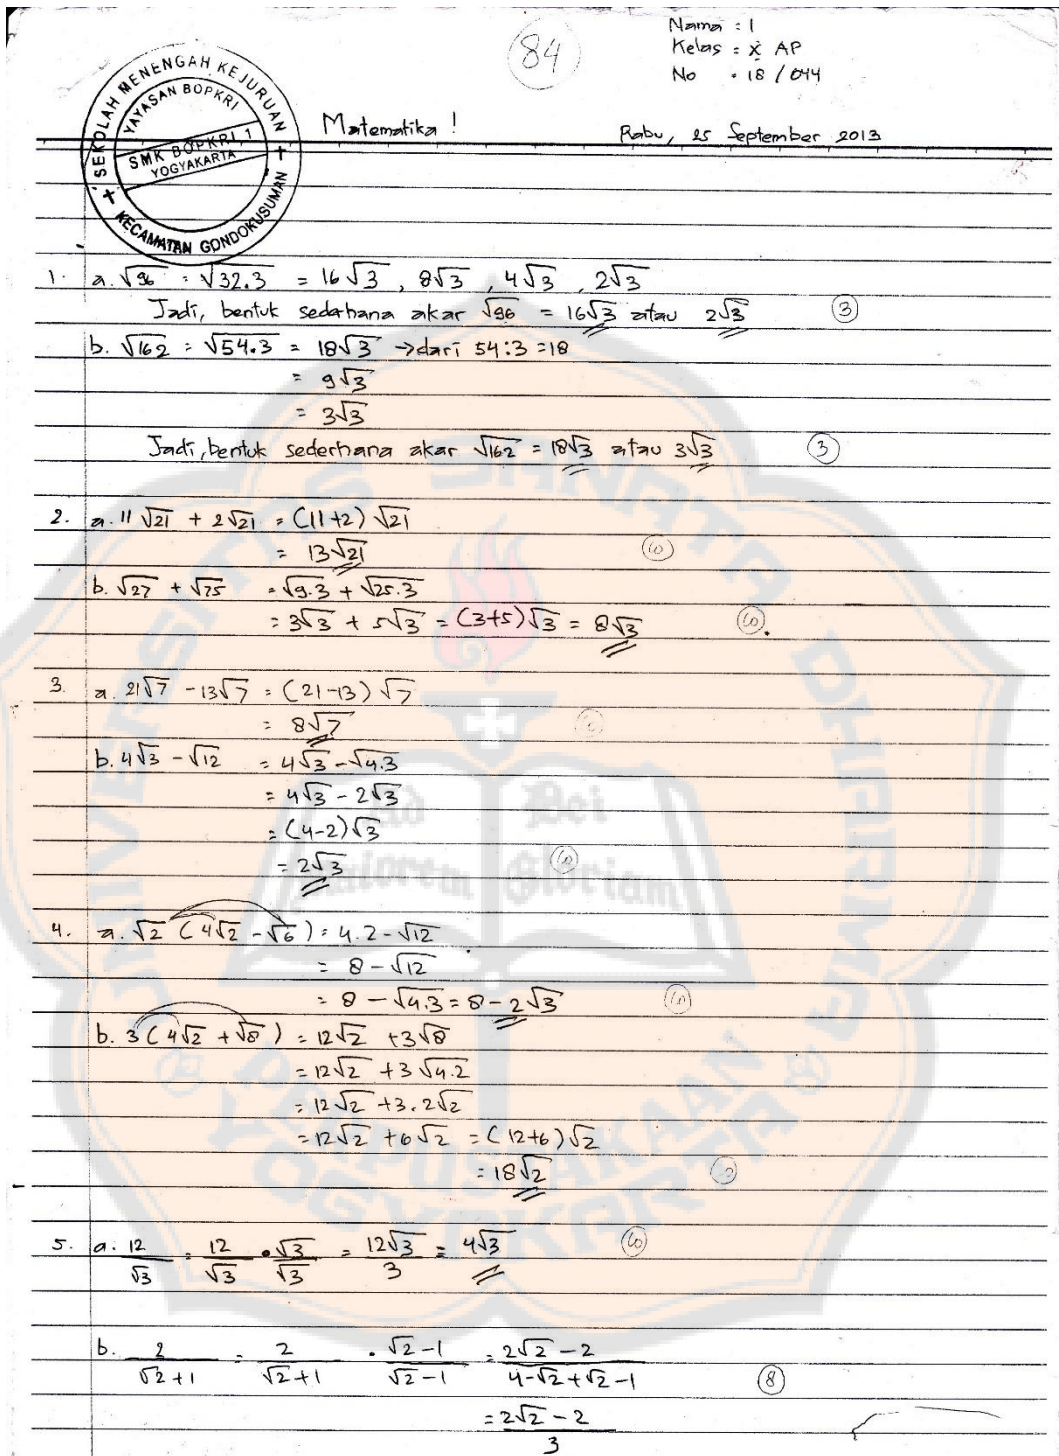 Nama : 1
84
Kelas : X AP
No : 18 / 044
SEKOLAH MENENGAH KEJURUAN
YAYASAN BOPKRI
SMK BOPKRI 1
YOGYAKARTA
KECAMATAN GONDOKUSUMAN
Matematika !
Rabu, 25 September 2013
1. a. √96 = √32.3 = 16√3 , 8√3 , 4√3 , 2√3
Jadi, bentuk sederhana akar √96 = 16√3 atau 2√3 3
b. √162 = √54.3 = 18√3 → dari 54:3 = 18
= 9√3
= 3√3
Jadi, bentuk sederhana akar √162 = 18√3 atau 3√3 3
2. a. 11√21 + 2√21 = (11+2)√21
= 13√21 10
b. √27 + √75 = √9.3 + √25.3
= 3√3 + 5√3 = (3+5)√3 = 8√3 10
3. a. 21√7 - 13√7 = (21-13)√7
= 8√7
b. 4√3 - √12 = 4√3 - √4.3
= 4√3 - 2√3
= (4-2)√3
= 2√3 10
4. a. √2 (4√2 - √6) = 4.2 - √12
= 8 - √12
= 8 - √4.3 = 8 - 2√3 10
b. 3 (4√2 + √8) = 12√2 + 3√8
= 12√2 + 3√4.2
= 12√2 + 3.2√2
= 12√2 + 6√2 = (12+6)√2
= 18√2
5. a. 12/√3 = 12/√3 • √3/√3 = 12√3/3 = 4√3 10
b. 2/√2+1 = 2/√2+1 . √2-1/√2-1 = 2√2-2/4-√2+√2-1 8
= 2√2-2/3
UNIVERSITAS SANATA DHARMA
Ad Dei
Maiorem Gloriam
PERPUSTAKAAN
YOGYAKARTA